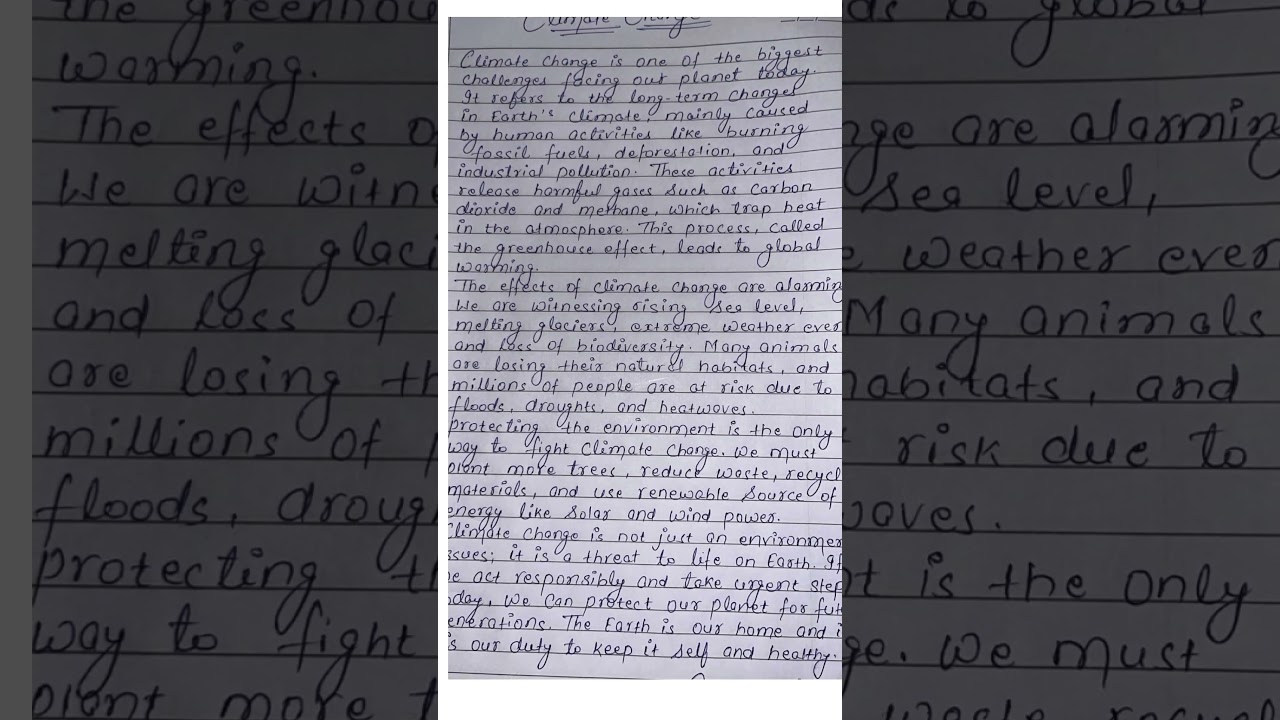 Climate Change
Climate change is one of the biggest
challenges facing our planet today.
It refers to the long-term changes
in Earth's climate, mainly caused
by human activities like burning
fossil fuels, deforestation, and
industrial pollution. These activities
release harmful gases such as carbon
dioxide and methane, which trap heat
in the atmosphere. This process, called
the greenhouse effect, leads to global
warming.
The effects of climate change are alarmin
We are witnessing rising sea level,
melting glaciers, extreme weather ever
and loss of biodiversity. Many animals
are losing their natural habitats, and
millions of people are at risk due to
floods, droughts, and heatwaves.
protecting the environment is the only
way to fight climate change. We must
plant more trees, reduce waste, recycl
materials, and use renewable source of
energy like solar and wind power.
Climate change is not just an environmen
ssues; it is a threat to life on Earth. If
e act responsibly and take urgent step
oday, we can protect our planet for fut
enerations. The Earth is our home and i
s our duty to keep it self and healthy.